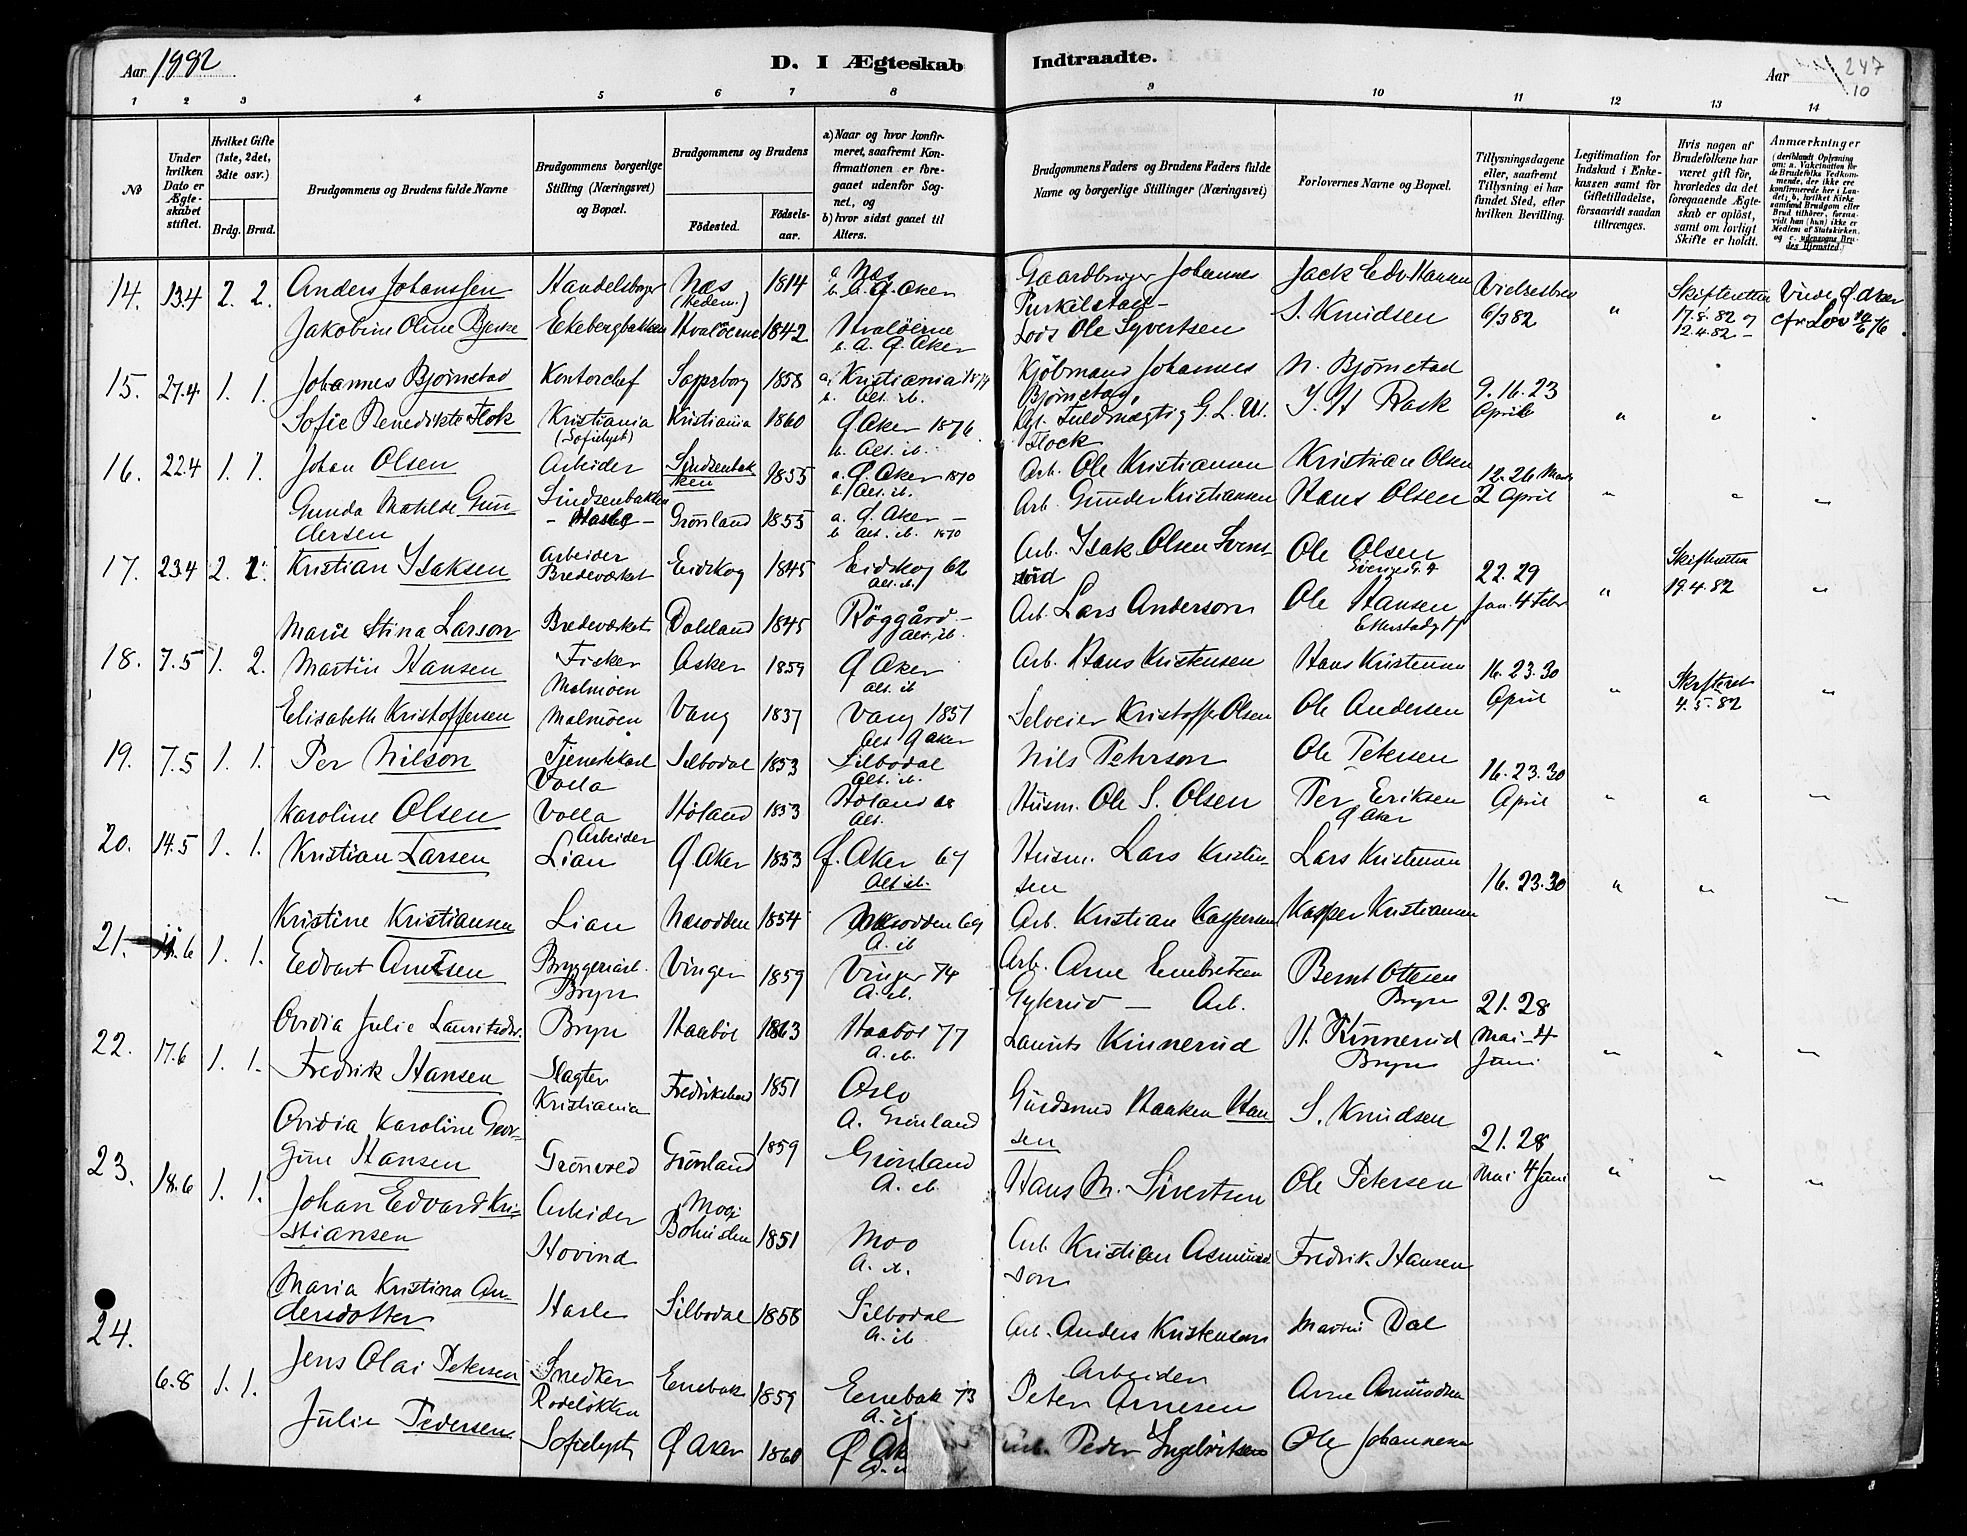 Aar 1882
D. I Ægteskab Indtraadte.
Aar 247
10
1 2 3 4 5 6 7 8 9 10 11 12 13 14
No
Under hvilken Dato er Ægteskabet stiftet.
Hvilket Gifte (1ste, 2det, 3die osv.)
Brdg. Brud.
Brudgommens og Brudens fulde Navne
Brudgommens borgerlige Stilling (Næringsvei) og Bopæl.
Brudgommens og Brudens
Fødested.
Fødselsaar.
a) Naar og hvor konfirmeret, saafremt Konfirmationen er foregaaet udenfor Sognet, og
b) hvor sidst gaaet til Alters.
Brudgommens Faders og Brudens Faders fulde Navne og borgerlige Stillinger (Næringsvei)
Forlovernes Navne og Bopæl.
Tillysningsdagene eller, saafremt Tillysning ei har fundet Sted, efter hvilken Bevilling.
Legitimation for Indskud i Enkekassen samt for Giftetilladelse, forsaavidt saadan tiltrænges.
Hvis nogen af Brudefolkene har været gift før, hvorledes da det foregaaende Ægteskab er opløst, samt om lovligt Skifte er holdt.
Anmærkninger (deriblandt Oplysning om: a. Vakcination for de Brudefolks Vedkommende, der ikke ere konfirmerede her i Landet; b. hvilket Kirkesamfund Brudgom eller Brud tilhører, forsaavidt han (hun) ikke er Medlem af Statskirken, og c. udensogns Brudes Hjemsted.)
14. 13.4 2. 2. Anders Johanssen Handelsborger Næs (Hedem.) 1814 a Næs b. A. Ø. Aker Gaardbruger Johannes Jack Edv. Hansen Vielsesbrev 6/3 82 " Skifteretten 17.8.82 og 12.4.82
Jakobine Oline Bjerke Ekebergbakken Hvaløerne 1842 Hvaløerne b. A. Ø. Aker Lods Ole Syvertsen S. Knudsen
15. 27.4 1. 1. Johannes Bjørnstad Kontorchef Sarpsborg 1858 a. Kristiania 1874 b. Alt. ib. Kjøbmand Johannes Bjørnstad, N. Bjørnstad 9. 16. 23 April " "
Sofie Benedikte Flok Kristiania (Sofielyst) Kristiania 1860 Ø Aker 1876 b. Alt. ib. Fuldmægtig G. L. W. Flock J. H. Rask
16. 22.4 1. 1. Johan Olsen Arbeider Sindsenbakken 1855 a. Ø. Aker 1870 b. Alt. ib. Arb. Ole Kristiansen Kristian Olsen 12. 26 Marts 2 April " " "
Gunda Matilde Gundersen Sindsenbakken - Hasle - Grønland 1855 a. Ø. Aker - b. Alt. ib. 1870 Arb. Gunder Kristiansen Hans Olsen
17. 23.4 2. 1. Kristian Isaksen Arbeider Bredeværket Eidskog 1845 Eidskog 62 Alt. ib. Arb. Isak Olsen Ole Olsen 22. 29 Jan. 4 Febr " Skifteretten 19.4.82 "
Marie Stina Larson Bredeværket Dalsland 1845 Röggård - Alt. ib. Arb. Lars Anderson Ole Hansen
18. 7.5 1. 2. Martin Hansen Fisker Malmøen Asker 1859 Ø Aker alt. ib Arb. Hans Kristensen Hans Kristensen 16. 23. 30 April " Skifteret 4.5.82 "
Elisabeth Kristoffersen Malmøen Vang 1837 Vang 1851 Alt Ø Aker Selveier Kristoffer Olsen Ole Andersen
19. 7.5 1. 1. Per Nilson Tjenestekarl Volla Silbodal 1853 Silbodal Alt. ib. Nils Petterson Ole Petersen 16. 23. 30 April " " "
Karoline Olsen Volla Høland 1853 Høland 68 Alt. Husm. Ole S. Olsen Per Eriksen Ø Aker
20. 14.5 1. 1. Kristian Larsen Arbeider Lian Ø Aker 1853 Ø. Aker 67 Alt ib. Husm. Lars Kristensen Lars Kristensen 16. 23. 30 " " "
Kristine Kristiansen Lian Næsodden 1854 Næsodden 69 A. ib Arb. Kristian Kaspersen Kasper Kristiansen
21. 11.6 1. 1. Edvart Arntsen Bryggeriarb. Bryn Vinger 1859 Vinger 74 A. ib. Arb. Arne Embretsen Bernt Ottesen Bryn 21. 28 Mai - 4 Juni " " "
Ovidia Julie Lauritsdr. Bryn Haabøl 1863 Haabøl 77 A. ib. Arb. Laurits Kinnerud H. Kinnerud Bryn
22. 17.6 1. 1. Fredrik Hansen Slagter Kristiania Fredrikshald 1851 Oslo A. Grønland Haaken Hansen S. Knudsen 21. 28 Mai 4 Juni " " "
Ovidia Karoline Georgine Hansen Grønvold Grønland 1859 Grønland A. ib. Hans M. Sivertsen Ole Petersen
23. 18.6 1. 1. Johan Edvard Kristiansen Arbeider Hovind Moo, Bohuslen 1851 Moo A. ib. Arb. Kristian Asmundson Fredrik Hansen
Maria Kristina Andersdotter Hasle Silbodal 1858 Silbodal A. ib. Arb. Anders Kristenson Martin Dal
24. 6.8 1. 1. Jens Olai Petersen Snedker Rodeløkken Enebak 1859 Enebak 73 Arbeider Peter Arnesen Arne Asmundsen
Julie Pedersen Sofielyst Ø Aker 1860 Ø Peder Ingebretsen Ole Johannesen